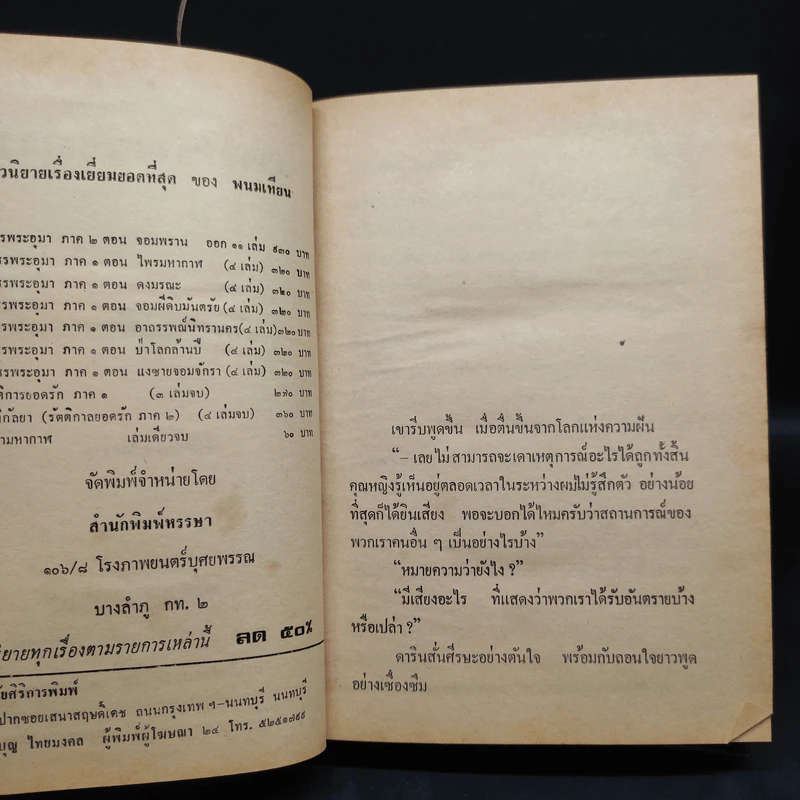 วนิยายเรื่องเยี่ยมยอดที่สุด ของ พนมเทียน
รพระอุมา ภาค ๒ ตอน จอมพราน ออก ๑๑ เล่ม ๙๓๐ บาท
รพระอุมา ภาค ๑ ตอน ไพรมหากาฬ (๔ เล่ม) ๓๒๐ บาท
รพระอุมา ภาค ๑ ตอน ดงมรณะ (๔ เล่ม) ๓๒๐ บาท
รพระอุมา ภาค ๑ ตอน จอมผีดิบมันตรัย (๔ เล่ม) ๓๒๐ บาท
รพระอุมา ภาค ๑ ตอน อาถรรพณ์นิทรานคร(๔ เล่ม)๓๒๐ บาท
รพระอุมา ภาค ๑ ตอน ป่าโลกล้านปี (๔ เล่ม) ๓๒๐ บาท
รพระอุมา ภาค ๑ ตอน แงซายจอมจักรา (๔ เล่ม) ๓๒๐ บาท
ติการยอดรัก ภาค ๑ (๓ เล่มจบ) ๒๗๐ บาท
กัลยา (รัตติกาลยอดรัก ภาค ๒) (๔ เล่มจบ) ๓๖๐ บาท
ามหากาฬ เล่มเดียวจบ ๖๐ บาท
จัดพิมพ์จำหน่ายโดย
สำนักพิมพ์หรรษา
๑๐๖/๘ โรงภาพยนตร์บุศยพรรณ
บางลำภู กท. ๒
ิยายทุกเรื่องตามรายการเหล่านี้ ลด ๕๐%
ัยศิริการพิมพ์
ปากซอยเสนาสฤษดิ์เดช ถนนกรุงเทพ ฯ-นนทบุรี นนทบุรี
บุญ ไทยมงคล ผู้พิมพ์ผู้โฆษณา ๒๔ โทร. ๕๒๕๑๗๙๙
เขารีบพูดขึ้น เมื่อตื่นขึ้นจากโลกแห่งความฝัน
“– เลยไม่สามารถจะเดาเหตุการณ์อะไรได้ถูกทั้งสิ้น
คุณหญิงรู้เห็นอยู่ตลอดเวลาในระหว่างผมไม่รู้สึกตัว อย่างน้อย
ที่สุดก็ได้ยินเสียง พอจะบอกได้ไหมครับว่าสถานการณ์ของ
พวกเราคนอื่น ๆ เป็นอย่างไรบ้าง”
“หมายความว่ายังไง ?”
“มีเสียงอะไร ที่แสดงว่าพวกเราได้รับอันตรายบ้าง
หรือเปล่า ?”
ดารินสั่นศีรษะอย่างตันใจ พร้อมกับถอนใจยาวพูด
อย่างเซื่องซึม